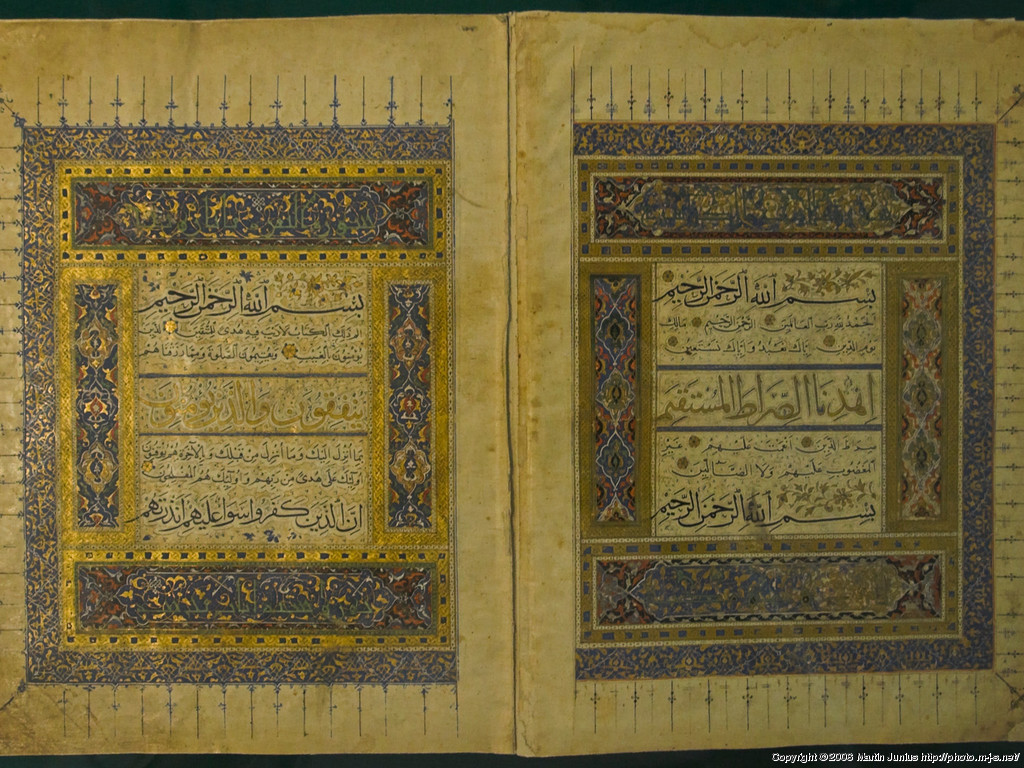 بسم الله الرحمن الرحيم
الحمد لله رب العالمين الرحمن الرحيم مالك
يوم الدين اياك نعبد واياك نستعين
اهدنا الصراط المستقيم
صراط الذين انعمت عليهم غير
المغضوب عليهم ولا الضالين
بسم الله الرحمن الرحيم
بسم الله الرحمن الرحيم
الم ذلك الكتاب لا ريب فيه هدى للمتقين الذين
يؤمنون بالغيب ويقيمون الصلوة ومما رزقناهم
ينفقون والذين يؤمنون
بما انزل اليك وما انزل من قبلك وبالآخرة هم يوقنون
اولئك على هدى من ربهم واولئك هم المفلحون
ان الذين كفروا سواء عليهم ءانذرتهم
Copyright ©2006 Martin Junius http://photo.m-j-s.net/